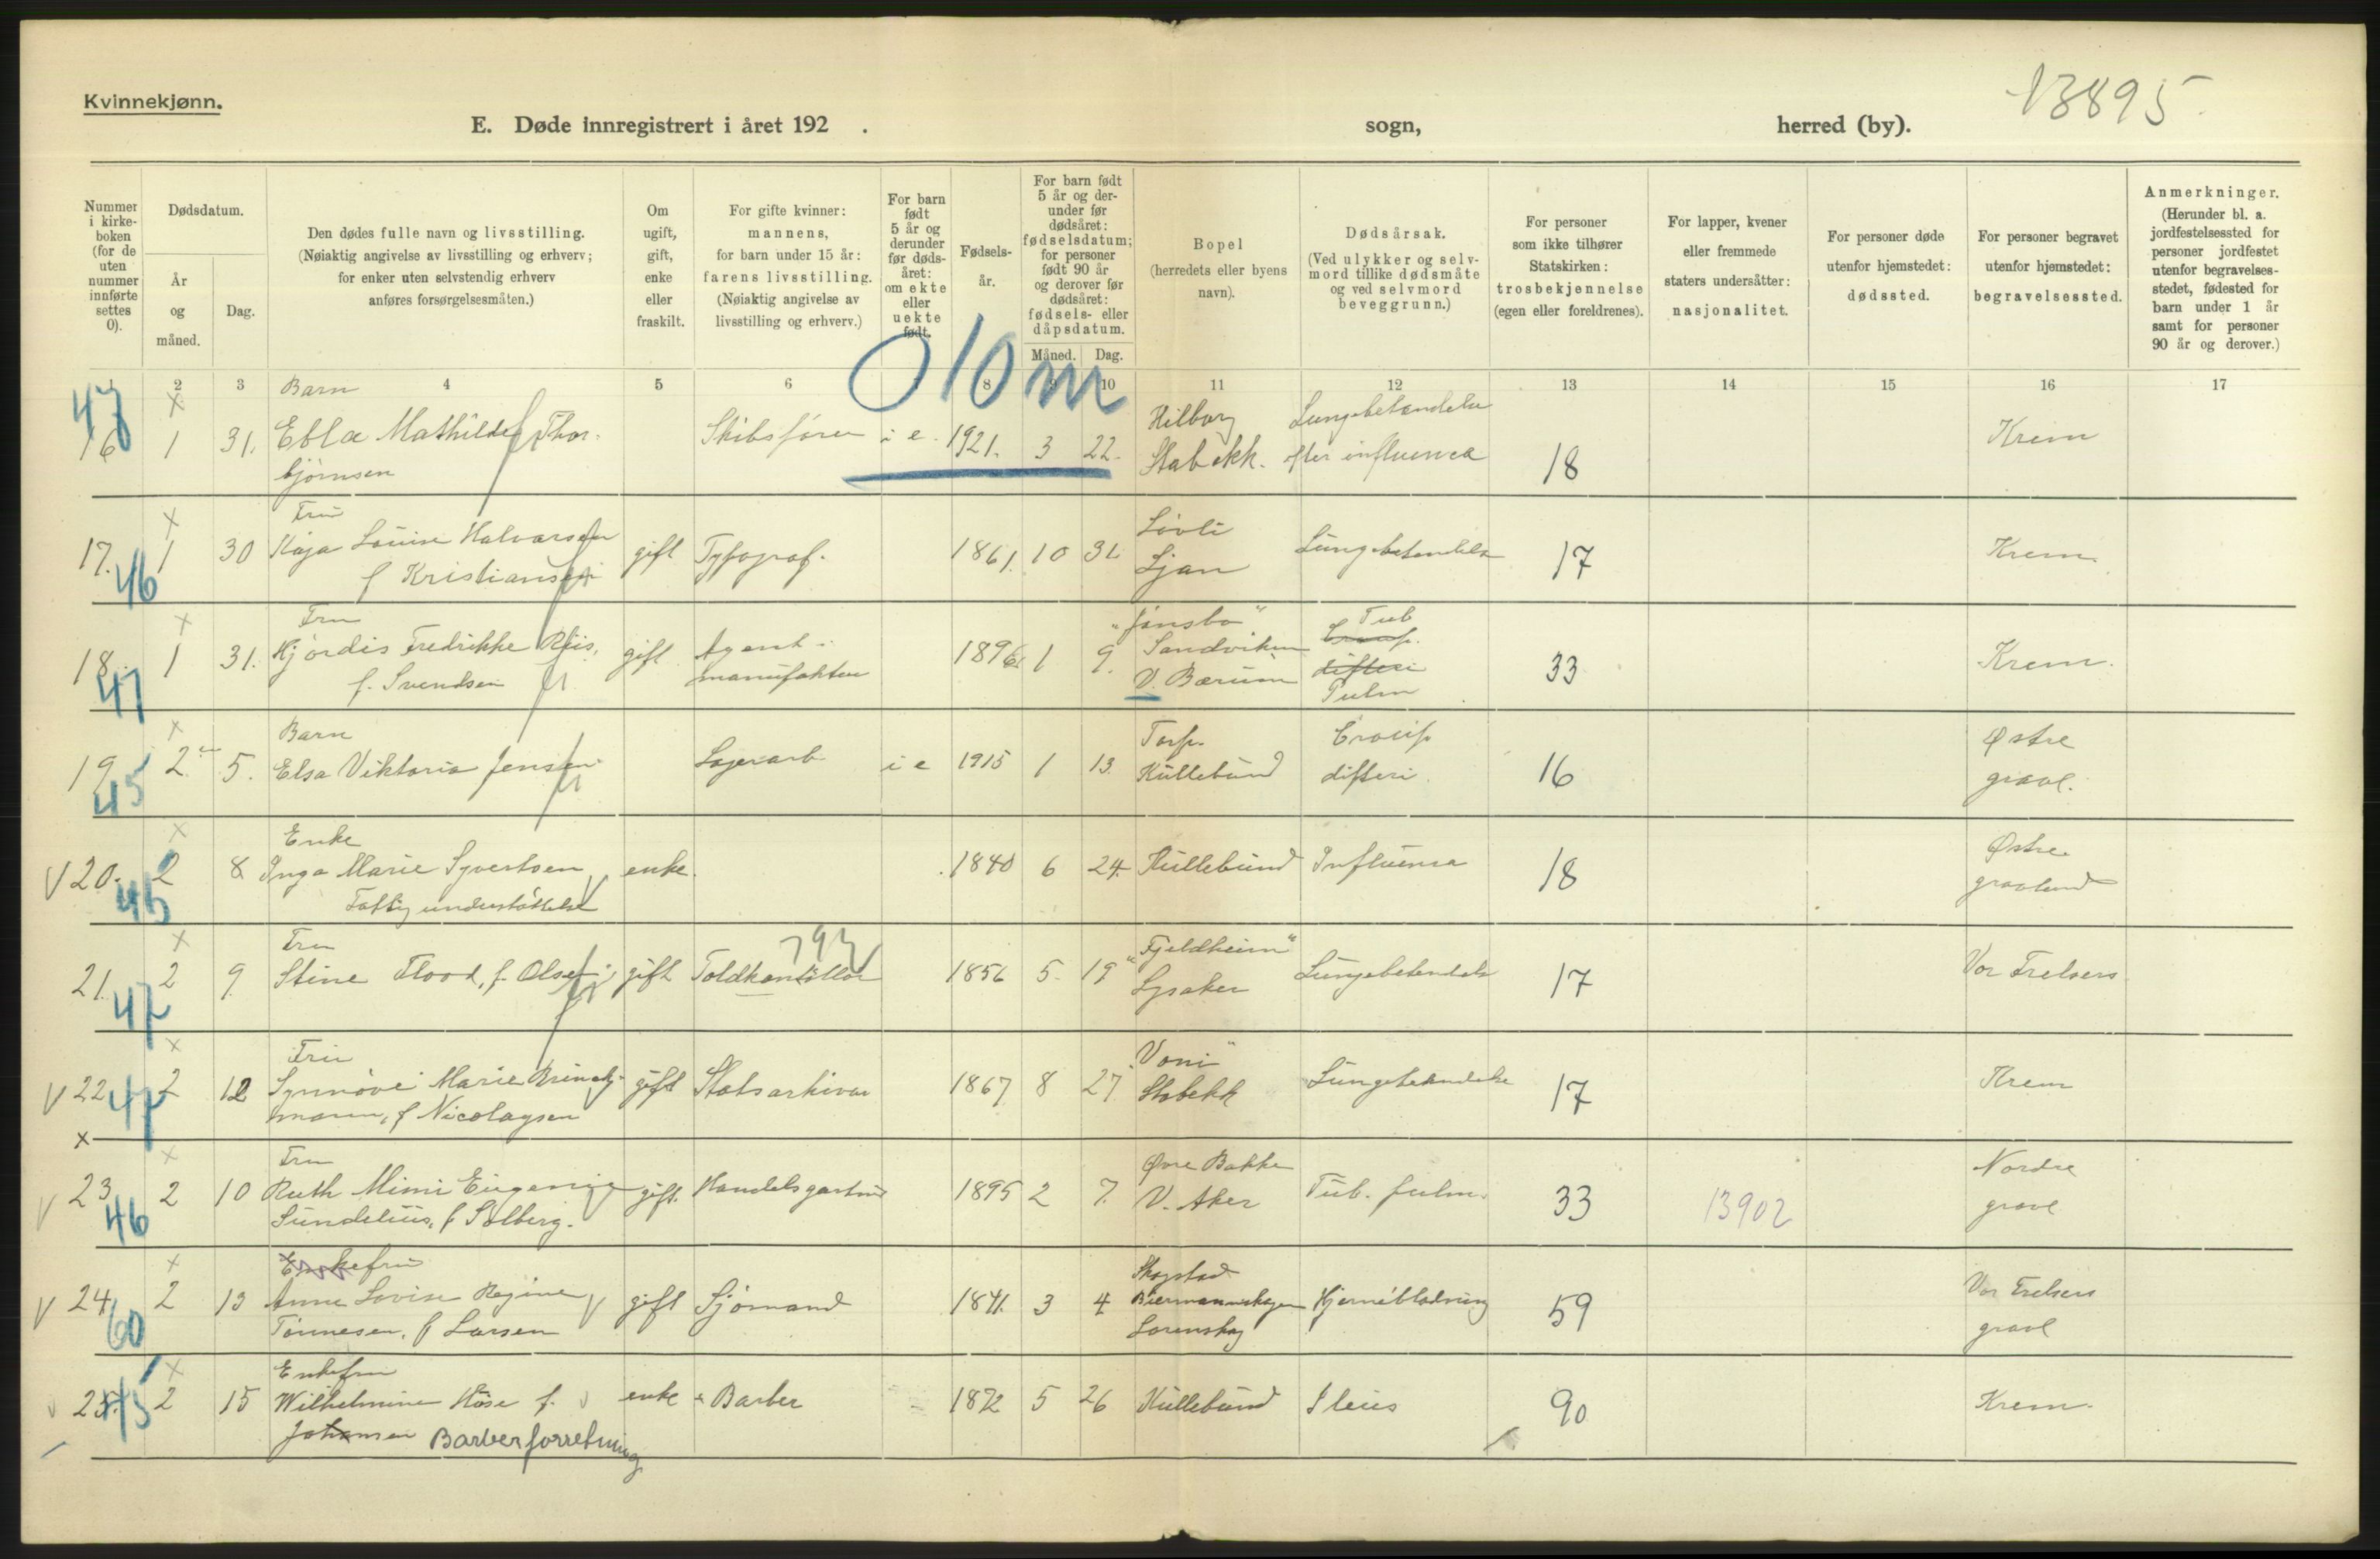 Kvinnekjønn.
13895
E. Døde innregistrert i året 192 .
sogn,
herred (by).
Nummer i kirkeboken (for de uten nummer innførte settes 0).
Dødsdatum.
År og måned.
Dag.
Den dødes fulle navn og livsstilling.
(Nøiaktig angivelse av livsstilling og erhverv;
for enker uten selvstendig erhverv
anføres forsørgelsesmåten.)
Om ugift, gift, enke eller fraskilt.
For gifte kvinner:
mannens,
for barn under 15 år:
farens livsstilling.
(Nøiaktig angivelse av
livsstilling og erhverv.)
For barn født 5 år og derunder før dødsåret: om ekte eller uekte født.
Fødsels-
år.
For barn født 5 år og derunder før dødsåret: fødselsdatum; for personer født 90 år og derover før dødsåret: fødsels- eller dåpsdatum.
Måned.
Dag.
Bopel
(herredets eller byens
navn).
Dødsårsak.
(Ved ulykker og selv-
mord tillike dødsmåte
og ved selvmord
beveggrunn.)
For personer
som ikke tilhører
Statskirken:
trosbekjennelse
(egen eller foreldrenes).
For lapper, kvener
eller fremmede
staters undersåtter:
nasjonalitet.
For personer døde
utenfor hjemstedet:
dødssted.
For personer begravet
utenfor hjemstedet:
begravelsessted.
Anmerkninger.
(Herunder bl. a.
jordfestelsessted for
personer jordfestet
utenfor begravelses-
stedet, fødested for
barn under 1 år
samt for personer
90 år og derover.)
1 2 3 4 5 6 8 9 10 11 12 13 14 15 16 17
0 10 m
47
Barn
16 1 31. Ebla Mathilde Thor- Skibsfører i e. 1921. 3 22. Hilborg Lungebetændelse 18 Krem
bjørnsen Stabekk. efter influensa
Fru
17. 46 1 30 Kaja Louise Halvorsen gift Typograf. 1861. 10 31. Løvli Lungebetændelse 17 Krem.
f Kristiansen Ljan
Fru
18. 47 1 31. Hjørdis Fredrikke Riis, gift Agent i 1896. 1 9. "Jansbo" Tub 33 Krem.
f. Svendsen manufaktur Sandviken Croup.
V. Bærum difteri
Pulm
Barn
19 45 2 5. Elsa Viktoria Jensen Lagerarb. i e 1915 1 13 Torp. Croup 16 Østre
Kullebund difteri gravl.
Enke
V 20. 45 2 8 Inga Marie Syvertsen enke. 1840 6 24. Kullebund Influensa 18 Østre
Fattigunderstøttelse gravlund
793
Fru
21. 47 2 9. Stine Flood, f. Olsen gift Toldkontollør 1856 5. 19 "Fjeldheim" Lungebetendelse 17 Vor Frelsers
Lysaker
Fru
V 22 47 2 12 Synnøve Marie Brinch- gift Statsarkivar 1867 8 27 "Voni" Lungebetændelse 17 Krem
mann, f Nicolaysen Stabekk
Fru
V 23 46 2 10 Ruth Mimi Eugenie gift. Handelsgartner 1895 2 7. Øvre Bakke Tub. pulm. 33 13902 Nordre
Sundelius, f Solberg. V. Aker gravl
Enkefru
V 24 60 2 13 Anne Lovise Regine gift Sjømand 1841. 3 4 Skogstad Hjerneblødning 59 Vor Frelsers
Tønnesen, f Larsen Biermannskogen gravl
Lørenskog
Enkefru
25. 45 2 15 Wilhelmine Hose f. enke Barber 1872 5 26 Kullebund Ileus 90 Krem.
Johansen Barberforretning